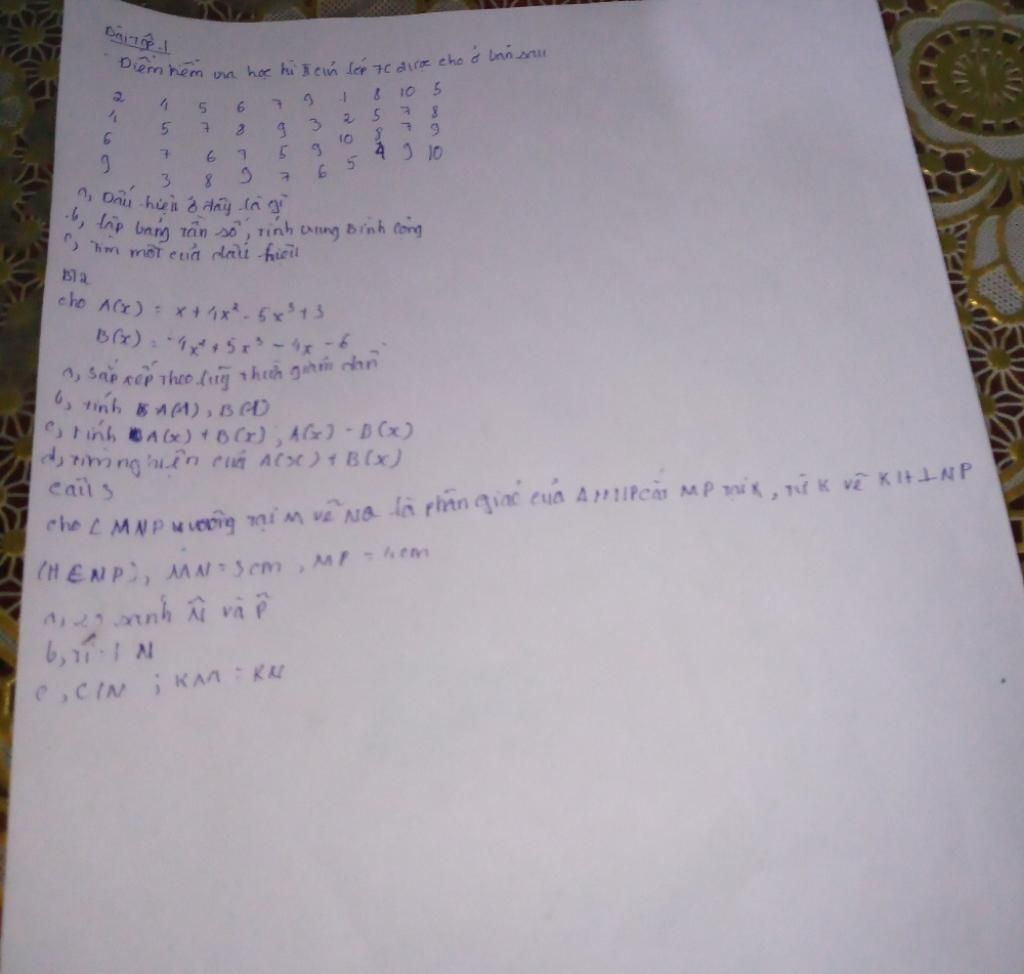 Bài tập.1
Điểm kiểm tra học kì II của lớp 7C được cho ở bản sau
2 4 5 6 7 9 1 8 10 5
4 5 7 8 9 3 2 5 7 8
6 7 6 7 5 9 10 8 7 9
9 3 8 9 7 6 5 4 9 10
a, Dấu hiệu ở đây là gì
b, lập bảng tần số, tính trung Bình Cộng
c, tìm mốt của dấu hiệu
B12
cho A(x) = x + 4x² - 5x³ + 3
B(x) = -4x² + 5x³ - 4x - 6
a, sắp xếp theo luỹ thừa giảm dần
b, tính A(1), B(1)
c, tính A(x) + B(x), A(x) - B(x)
d, tìm nghiện của A(x) + B(x)
câu 3
cho MNP vuông tại M vẽ NQ là phân giác của ΔMNP cắt MP tại K, từ K vẽ KH⊥NP
(H∈NP), MN = 3cm, MP = 4cm
a, sánh N̂ và P̂
b, N
c, C/N ; KM = KN